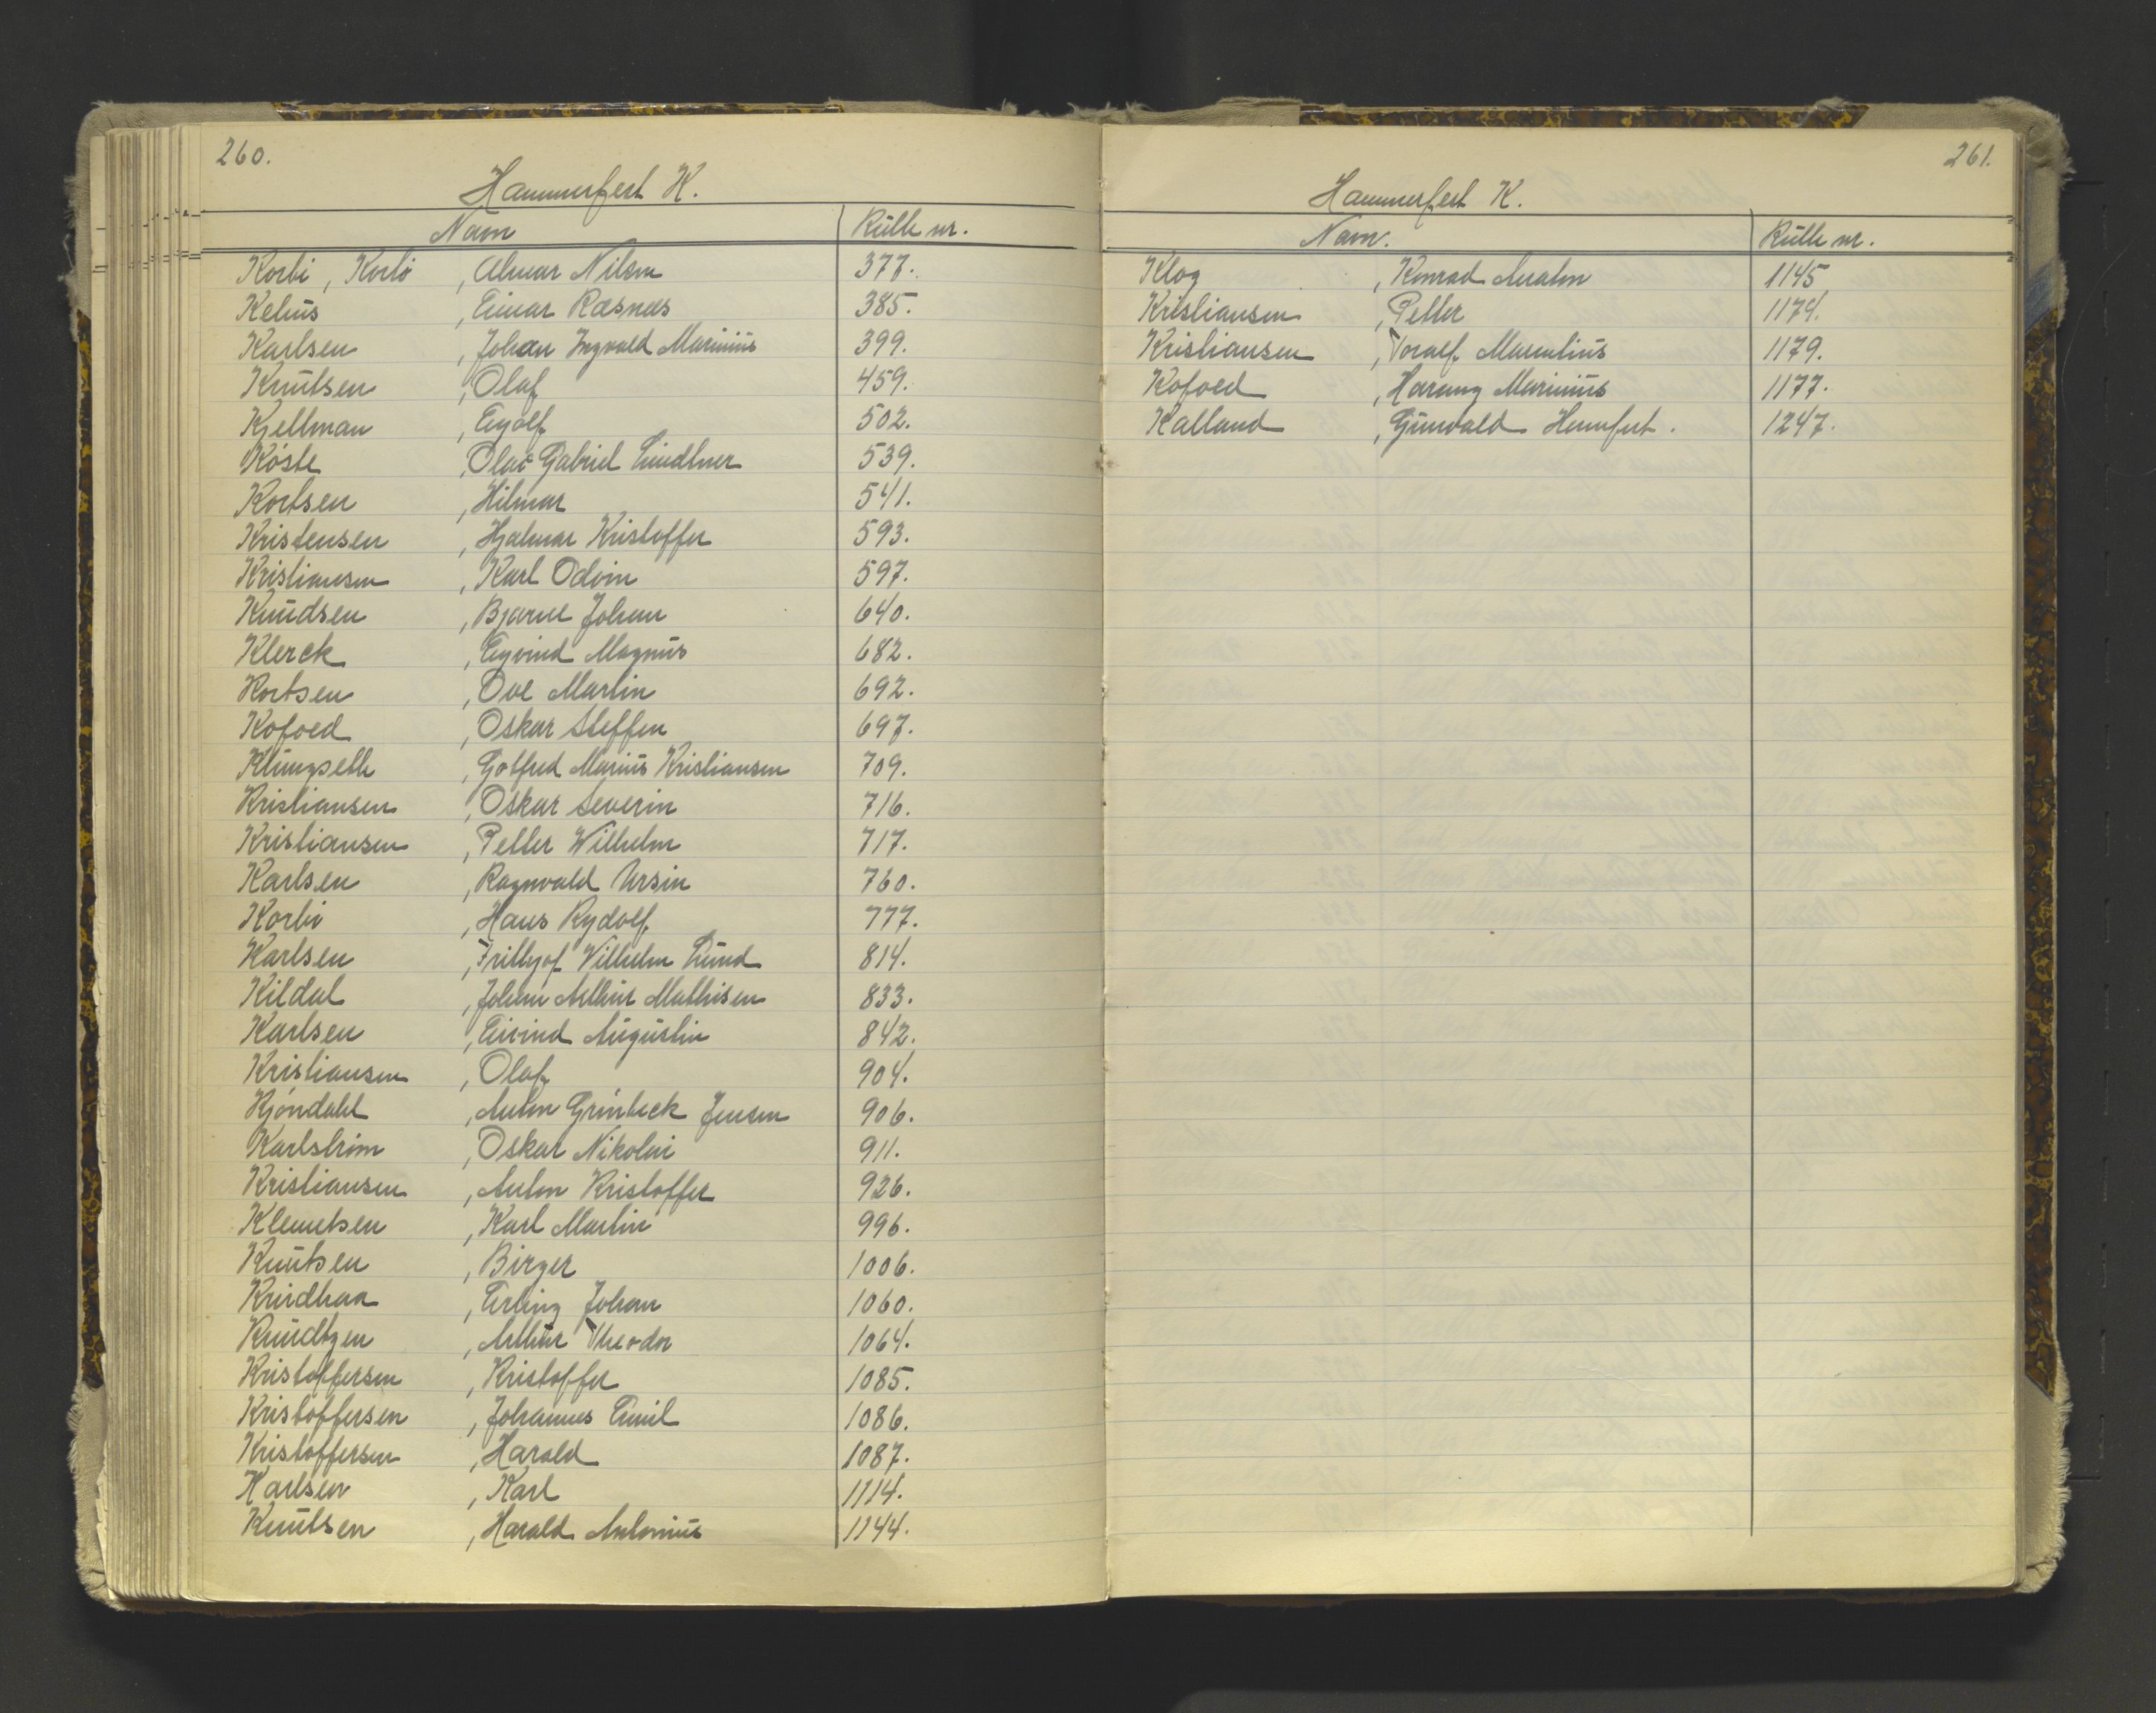 260.
Hammerfest K.
Navn Rulle nr.
Korbi, Korbö, Almar Nilsen 377.
Kelius, Einar Ræsnæs 385.
Karlsen, Johan Ingvald Marinius 399.
Knutsen, Olaf 459.
Kjellman, Eyolf 502.
Köste, Olai Gabriel Lindtner 539.
Kortsen, Hilmar 541.
Kristensen, Hjalmar Kristoffer 593.
Kristiansen, Karl Odvin 597.
Knudsen, Bjarne Johan 640.
Klerck, Eyvind Magnus 682.
Kortsen, Ove Martin 692.
Kofoed, Oskar Steffen 697.
Klungseth, Gotfred Marius Kristiansen 709.
Kristiansen, Oskar Severin 716.
Kristiansen, Petter Wilhelm 717.
Karlsen, Ragnvald Ursin 760.
Korbi, Hans Rydolf 777.
Karlsen, Frithjof Vilhelm Lund 814.
Kildal, Johan Arthur Mathisen 833.
Karlsen, Eivind Augustin 842.
Kristiansen, Olaf 904.
Kjöndahl, Anton Grönbeck Jensen 906.
Karlström, Oskar Nikolai 911.
Kristiansen, Anton Kristoffer 926.
Klemetsen, Karl Martin 996.
Knutsen, Birger 1006.
Erling Johan 1060.
Knudtzen, Arthur Theodor 1064.
Kristoffersen, Kristoffer 1085.
Kristoffersen, Johannes Emil 1086.
Kristoffersen, Harald 1087.
Karlsen, Karl 1114.
Knutsen, Harald Antonius 1144.
261.
Hammerfest K.
Navn. Rulle nr.
Klog, Konrad Anton 1145
Kristiansen, Petter 1174.
Kristiansen, Toralf 1179.
Kofoed, Hareng Marinius 1177.
Kalland, Gunvald 1247.